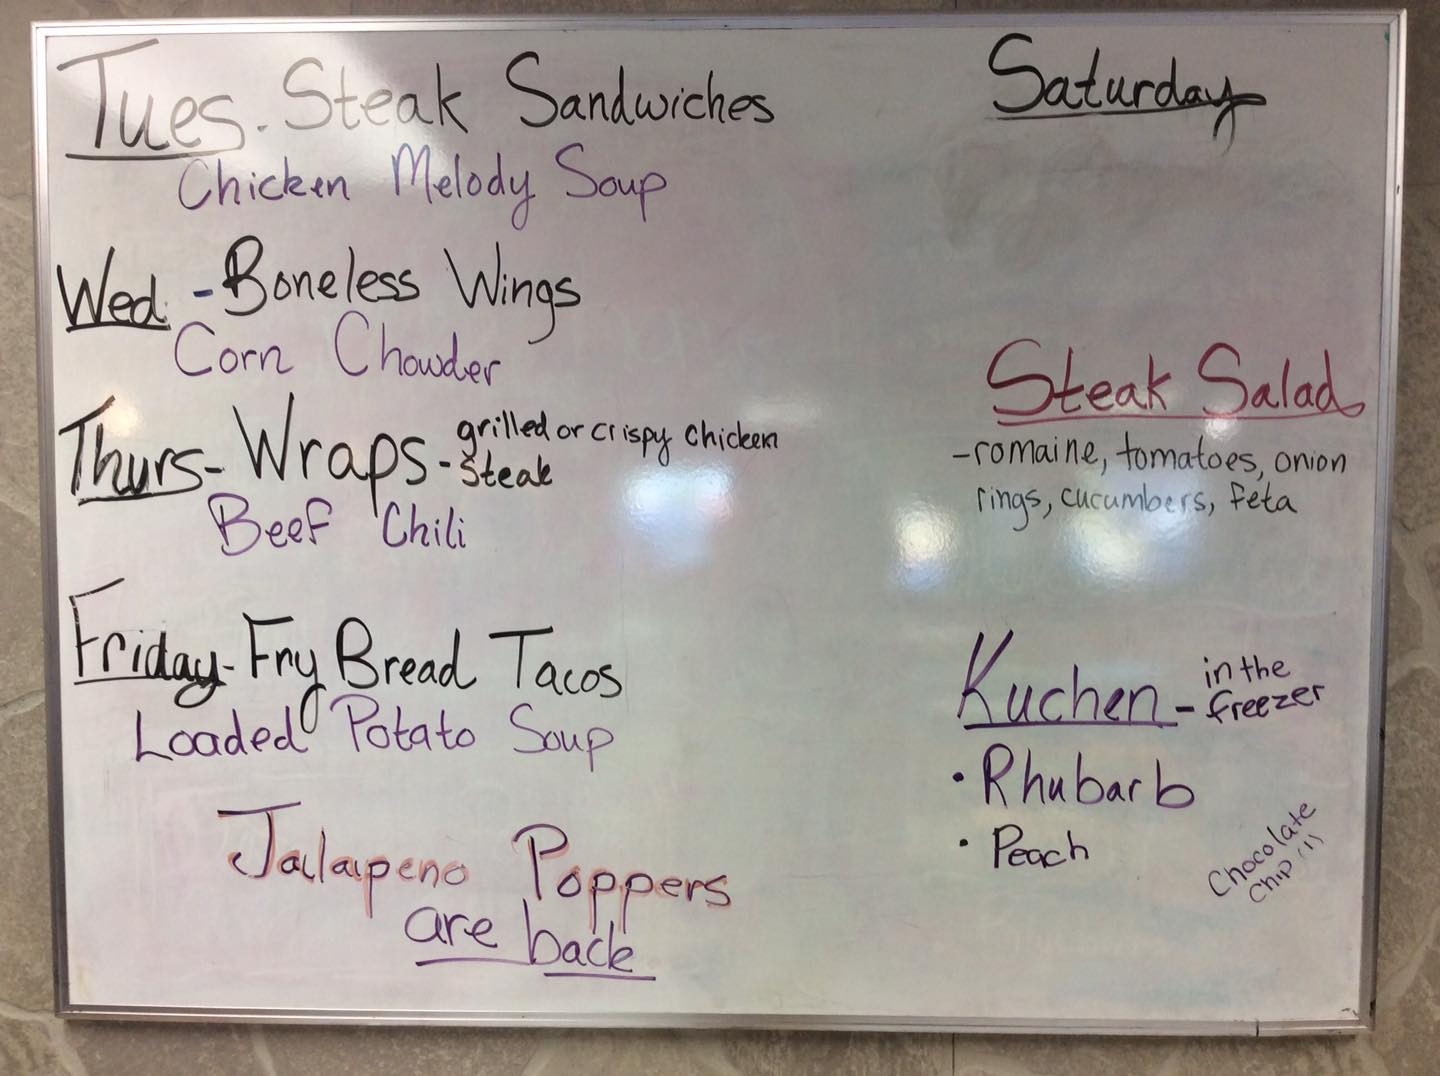 Tues. Steak Sandwiches
Chicken Melody Soup
Wed - Boneless Wings
Corn Chowder
Thurs- Wraps- grilled or crispy chicken
steak
Beef Chili
Friday- Fry Bread Tacos
Loaded Potato Soup
Jalapeno Poppers
are back
Saturday
Steak Salad
- romaine, tomatoes, onion
rings, cucumbers, feta
Kuchen - in the
freezer
• Rhubarb
• Peach
Chocolate
chip (1)